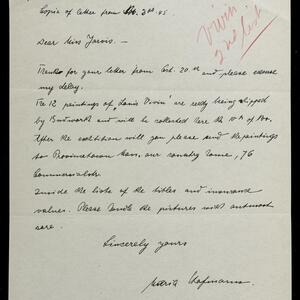 Copie of letter from Nov. 3rd. 45
Vivin
2nd list
Dear Miss Jarvis.
Thanks for your letter from Oct. 20th and please excuse
my delay.
The 12 paintings of „Louis Vivin" are redy being shipped
by Budworth and will be collected here the 10th of Nov.
After the exhibition will you please send the paintings
to Provincetown Mass. our country home, 76
Commercialstr.
Inside the liste of the titles and insurance
values. Please handle the pictures with outmost
care.
Sincerely yours
Maria Hofmann